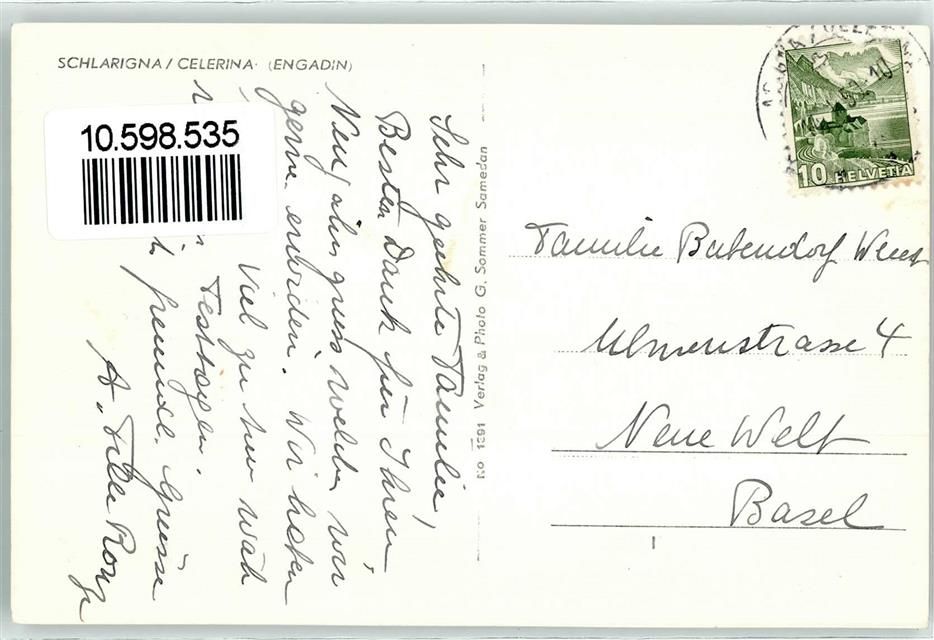 SCHLARIGNA / CELERINA (ENGADIN)
10.598.535
Sehr geehrte Familie,
Besten Dank für Ihren
Neujahrsgruss welchen wir
gerne erwidern. Wir hatten
Viel zu tun
Festtagen.
freundl. Grüsse
A.
No 1891 Verlag & Photo G. Sommer Samedan
10 HELVETIA
Familie
Ulmenstrasse 4
Neue Welt
Basel